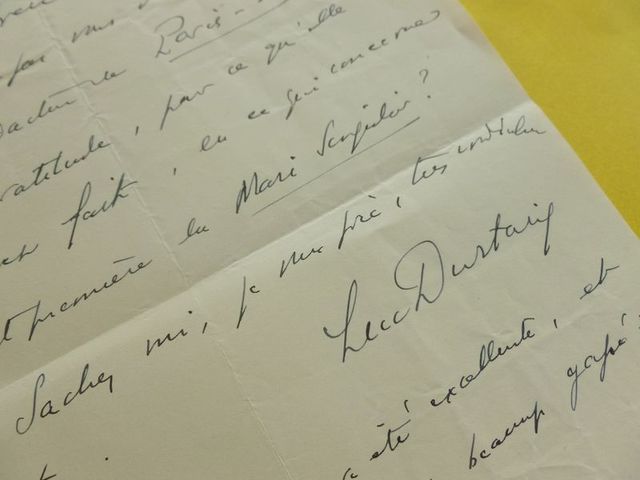 vous
Paris-
gratitude, pour ce qu'elle
fait, en ce qui concerne
première du Mari Singulier?
Sachez moi, je vous prie, très cordialement
Luc Durtain
a été excellente, et
beaucoup gagné